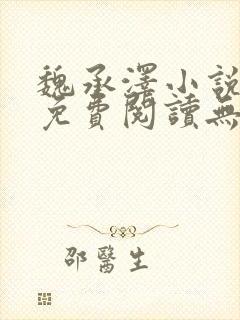 魏承澤小說
免費閱讀無
邵醫生